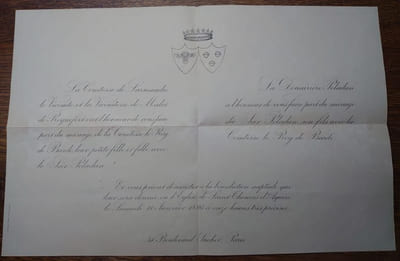 La Comtesse de Larmandie
le Vicomte et la Vicomtesse de Malet
de Roquefort ont l'honneur de vous faire
part du mariage de la Comtesse le Roy
de Barde, leur petite fille et fille, avec
le Sar Péladan.
La Douairière Péladan
a l'honneur de vous faire part du mariage
du Sar Péladan, son fils, avec la
Comtesse le Roy de Barde.
Et vous prient d'assister à la bénédiction nuptiale qui
leur sera donnée en l'Eglise de Saint Thomas d'Aquin
le Samedi 11 Janvier 1896 à onze heures très précises.
Boulevard Suchet, Paris